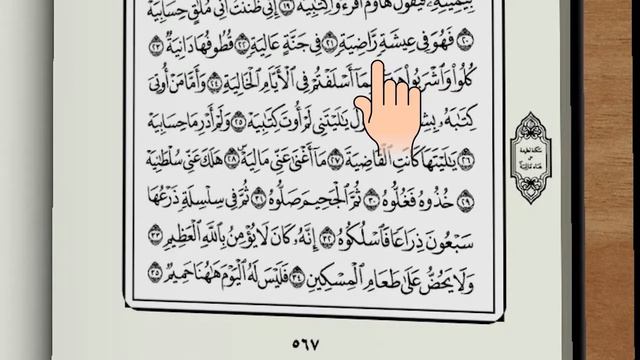 بِيَمِينِهِۦ فَيَقُولُ هَآؤُمُ ٱقۡرَءُواْ كِتَٰبِيَهۡ ١٩ إِنِّي ظَنَنتُ أَنِّي مُلَٰقٍ حِسَابِيَهۡ
٢٠ فَهُوَ فِي عِيشَةٖ رَّاضِيَةٖ ٢١ فِي جَنَّةٍ عَالِيَةٖ ٢٢ قُطُوفُهَا دَانِيَةٞ ٢٣
كُلُواْ وَٱشۡرَبُواْ بِمَآ أَسۡلَفۡتُمۡ فِي ٱلۡأَيَّامِ ٱلۡخَالِيَةِ ٢٤ وَأَمَّا مَنۡ أُوتِيَ
كِتَٰبَهُۥ يَٰلَيۡتَنِي لَمۡ أُوتَ كِتَٰبِيَهۡ ٢٥ وَلَمۡ أَدۡرِ مَا حِسَابِيَهۡ
٢٦ يَٰلَيۡتَهَا كَانَتِ ٱلۡقَاضِيَةَ ٢٧ مَآ أَغۡنَىٰ عَنِّي مَالِيَهۡۜ ٢٨ هَلَكَ عَنِّي سُلۡطَٰنِيَهۡ
٢٩ خُذُوهُ فَغُلُّوهُ ٣٠ ثُمَّ ٱلۡجَحِيمَ صَلُّوهُ ٣١ ثُمَّ فِي سِلۡسِلَةٖ ذَرۡعُهَا
سَبۡعُونَ ذِرَاعٗا فَٱسۡلُكُوهُ ٣٢ إِنَّهُۥ كَانَ لَا يُؤۡمِنُ بِٱللَّهِ ٱلۡعَظِيمِ ٣٣
وَلَا يَحُضُّ عَلَىٰ طَعَامِ ٱلۡمِسۡكِينِ ٣٤ فَلَيۡسَ لَهُ ٱلۡيَوۡمَ هَٰهُنَا حَمِيمٞ ٣٥
٥٦٧